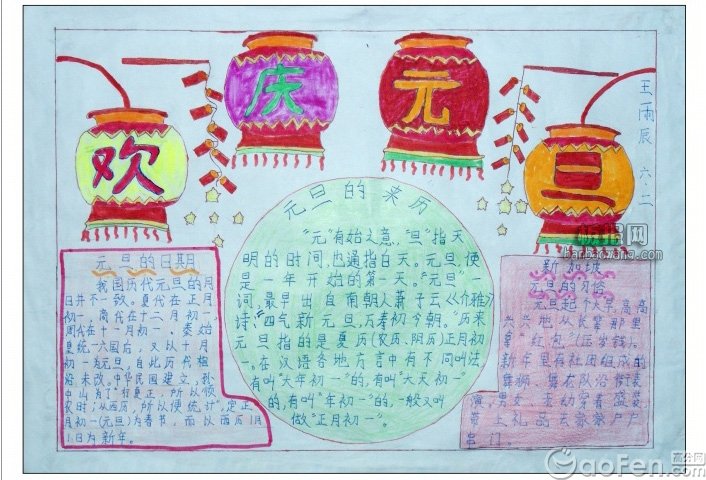 欢
庆
元
旦
王雨辰 六.二
元旦的日期
我国历代元旦的月
日并不一致。夏代在正月
初一，商代在十二月初一，
周代在十一月初一，秦始
皇统一六国后，又以十月
初一为元旦，自此历代相
沿未改。中华民国建立，孙
中山为了"行夏正，所以顺
农时；从西历，所以便统计"，定正
月初一(元旦)为春节，而以西历1月
1日为新年。
元旦的来历
"元"有始之意，"旦"指天
明的时间，也通指白天。元旦，便
是一年开始的第一天。"元旦"一
词，最早出自南朝人萧子云《介雅》
诗："四气新元旦，万寿初今朝。"历来
元旦指的是夏历(农历、阴历)正月初
一。在汉语各地方言中有不同叫法，
有叫"大年初一"的，有叫"大天初一"
的，有叫"年初一"的，一般又叫
做"正月初一"。
新加坡
元旦的习俗
元旦起个大早，高高
兴兴地从长辈那里
拿"红包"(压岁钱)。
新年里有社团组成的
舞狮、舞龙队沿街表
演，男女、老幼穿着盛装
带上礼品去家家户户
串门。
板报网
hanbaowang.com
高分网
GaoFen.com